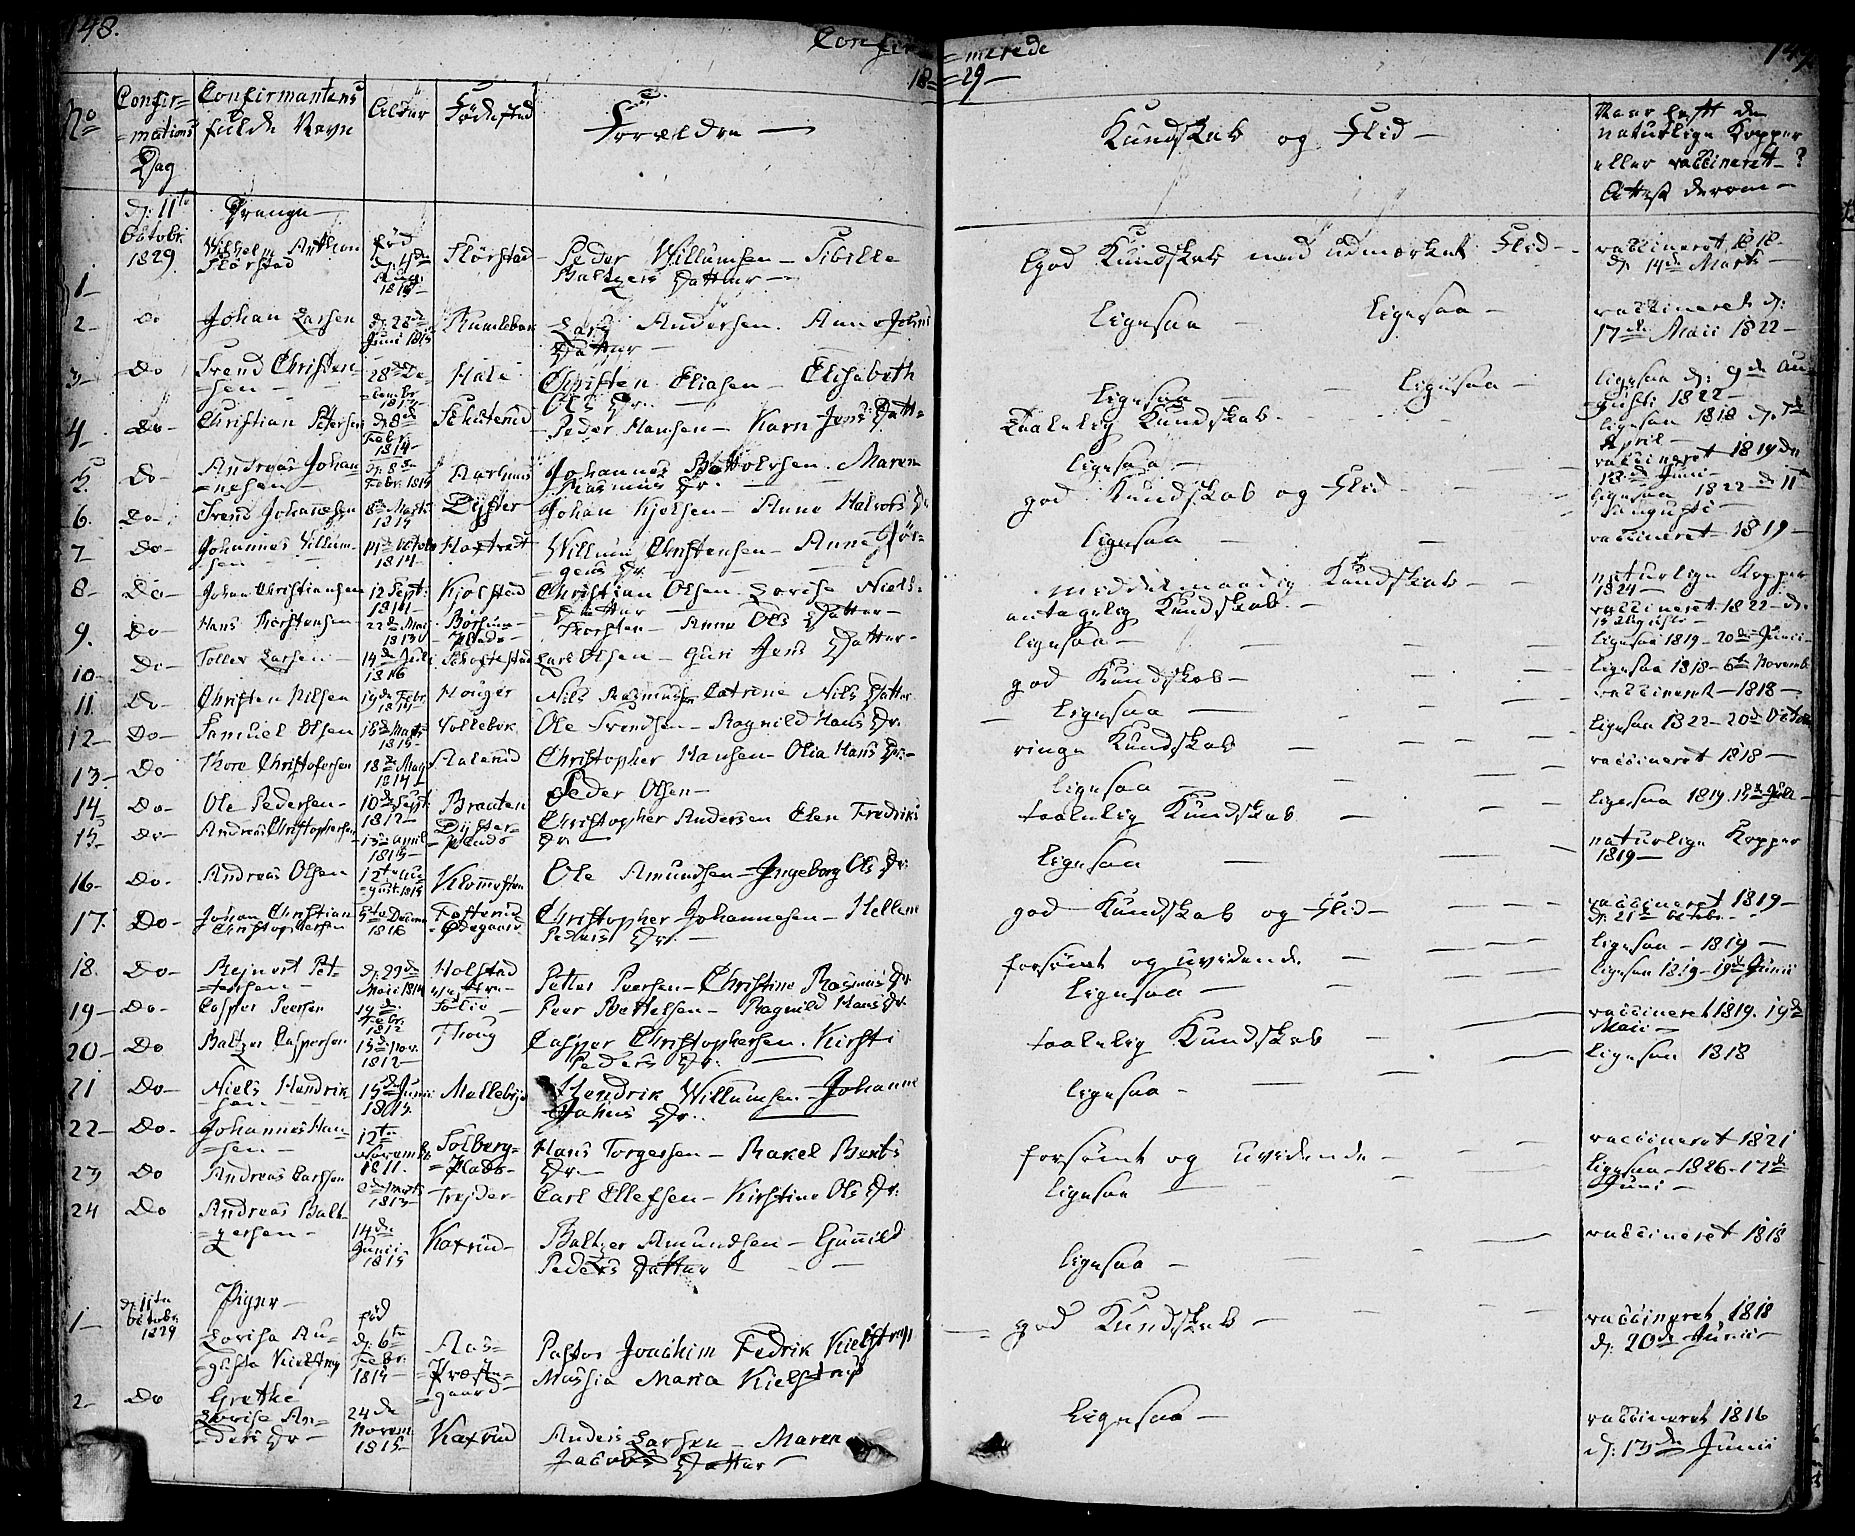 148.
Confir=
=merede
149
18=
=29-
No
Confir=
=mations
Dag
Confirmantens
fulde Navn
Alder
Födested
Forældre
Kundskab og Flid
Naar haft de
naturlige Kopper
eller vaccineret?
Attest derom
d: 11te Octobr. 1829.
Drenge
1 Vilhelm Anthon Flörstad
föd
Flörstad
Peder Willumsen - Sibille Baltzers Datter
God Kundskab med udmærket Flid
vaccineret 1818 d: 14de Marts
2 Do Johan Larsen
Lars Andersen. Anne Johns Datter
Ligesaa Ligesaa
vaccineret d: 17de Maii 1822
3 Do Svend Christensen
Christen Eliasen - Elisabeth Ols Dr.
Ligesaa Ligesaa
ligesaa d: 9de Augusti 1822
4 Do Christian Petersen
d: 8de Febr. 1814
Peder Hansen - Karn Jens Datter
Taalelig Kundskab
ligesaa 1818 April
5 Do Andreas Johannesen
d: 8de Febr. 1815
Maren Rasmus Dr.
ligesaa
vaccineret 1819 Junii
6 Do Svend Johannesen
Dyster
Johan Kjelsen - Anne Halvors Dr
god Kundskab og Flid
ligesaa 1822 Augusti
7 Do Johannes Willumsen
1814
Willum Christensen - Anne Jörgens Dr
ligesaa
vaccineret 1819
8 Do Johan Christiansen
12 Sept: 1814
Kjolstad
Christian Olsen. Lovise Niels Datter
middelmaadig Kundskab
naturlige Kopper 1824
9 Do Hans Thorstensen
Thorsten - Anne Ols Datter
antagelig Kundskab
vaccineret 1822 d. 15 Augusti
10 Do Tollev Larsen
14de Juli 1816
Lars Olsen - Guri Jens Datter
ligesaa
ligesaa 1819 - 20de Junii
11 Do Christen Nilsen
19de Febr. 1815
Houger
Nils Rasmusen Catrine Nils Datter
god Kundskab
ligesaa 1818 - 6te Novemb
12 Do Samuel Olsen
Vollebek
Ole Svendsen - Ragnild Hans Dr.
Ligesaa
vaccineret 1818
13 Do Thore Christofersen
1814
Christopher Hansen - Olia Hans Dr.
ringe Kundskab
ligesaa 1822 - 20de Octob
14 Do Ole Pedersen
10de Sept. 1812
Brauten
Peder Olsen
ligesaa
vaccineret 1818
15 Do Andreas Christophersen
13de april 1815
Dyster=Plads
Christopher Andersen Elen Fredriks Dr
taalelig Kundskab
ligesaa 1819.
16 Do Andreas Olsen
12te August 1815
Ole Amundsen - Ingeborg Ols Dr.
ligesaa
naturlige Kopper 1819
17. Do Johan Christian Christophersen
Ödegaard
Christopher Johannesen - Hellene Peders Dr.
god Kundskab og Flid
vaccineret 1819 d: 21de Octobr.
18. Do Rejnert Pettersen
d: 29de Maii 1814
Holstad
Petter Peersen - Christine Rasmus Dr
forsömt og uvidende
ligesaa - 1819
19 Do Casper Peersen
19de Febr. 1812
Peer Bertelsen - Ragnild Hans Dr.
Ligesaa
ligesaa 1819 - 19de Junii
20 Do Baltzer Caspersen
15de Nov. 1812
Casper Christophersen. Kirsti Peders Dr.
taalelig Kundskab
vaccineret 1819. 19de Maii
21 Do Niels Hendriksen
15de Junii
Mellebye
Hendrik Willumsen - Johanne Johns Dr.
ligesaa
ligesaa 1818
22 Do Johannes Hansen
12te Novemb. 1811.
Solberg=Plads
Hans Torgersen - Rakel Berts Dr.
forsömt og uvidende
vaccineret 1821
23 Do Andreas Carlsen
Trejder
Carl Ellefsen - Kirstine Ols Dr.
ligesaa
ligesaa 1826 - 12de Juni
24 Do Andreas Baltzersen
14de Junii 1815
Kaxrud
Baltzer Amundsen - Gunild Peders Datter
ligesaa
vaccineret 1818
d: 11te Octobr. 1829
Piger
1 Lovisa Augusta Kielstrup
föd d: 6te Febr. 1815
Aas=Præste=gaard
Pastor Joachim Fedrik Kielstrup
Massia Maria Kielstrup
god Kundskab
vaccineret 1818 d: 20de Junii
2 Do Grethe Lovise Anders Dr
24de Novem 1815
Kaxrud
Anders Larsen - Maren Jacobs Datter
Ligesaa
vaccineret 1816 d: 13de Junii